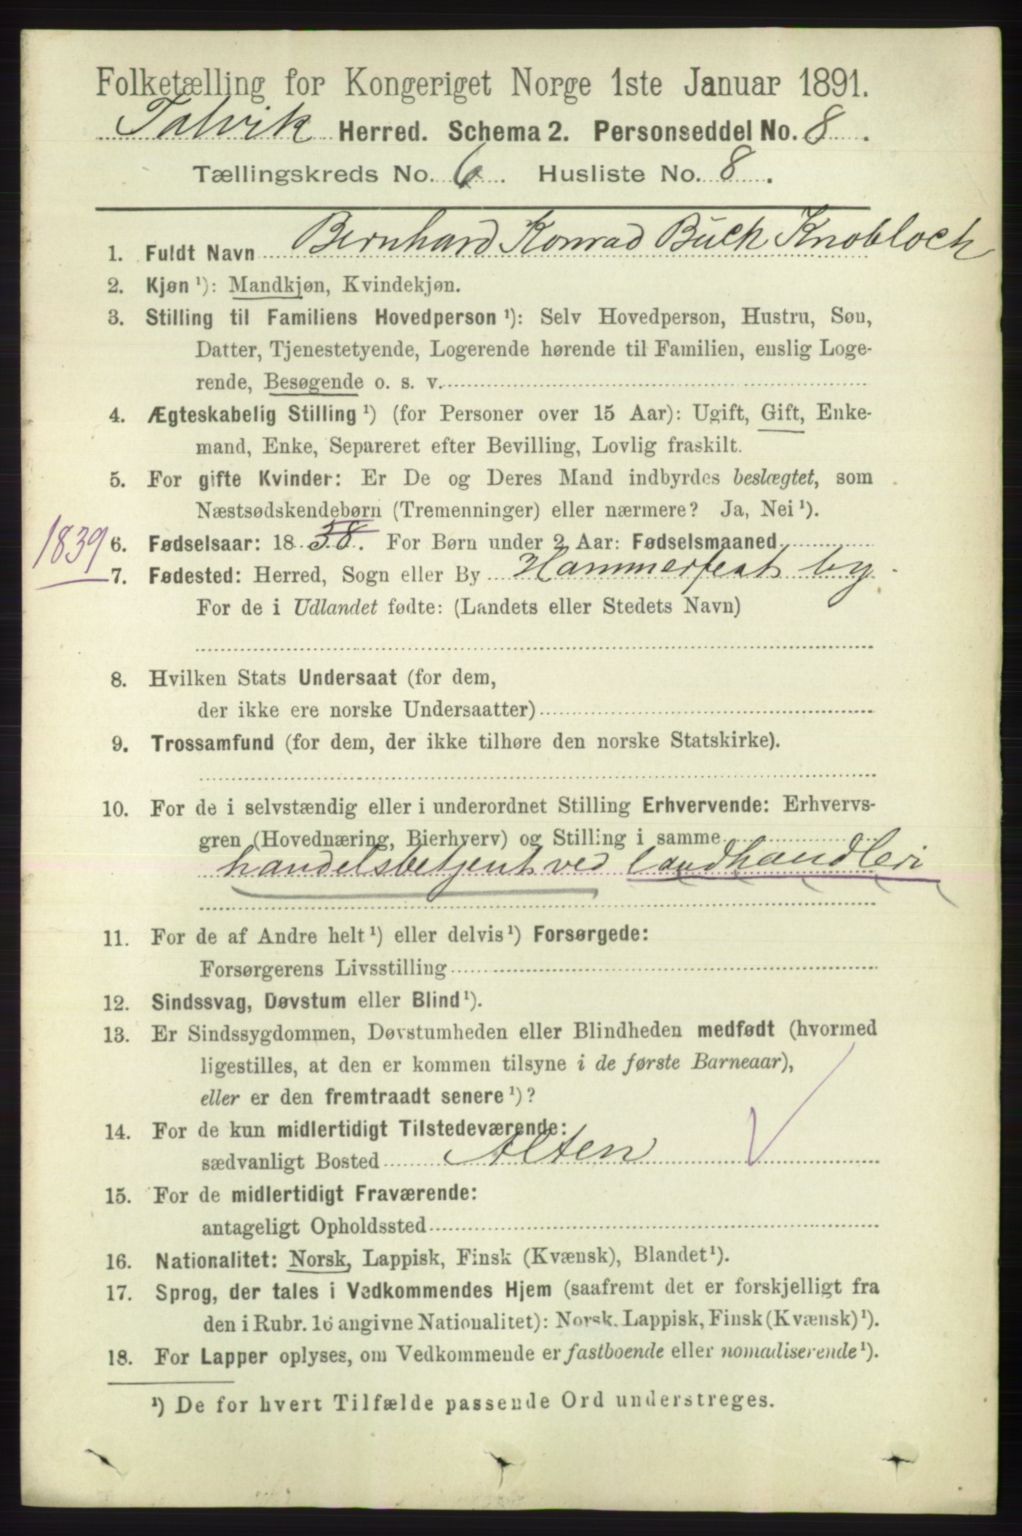 Folketælling for Kongeriget Norge 1ste Januar 1891.
Talvik Herred. Schema 2. Personseddel No. 8.
Tællingskreds No. 6. Husliste No. 8.
1. Fuldt Navn Bernhard Konrad Buck Knobloch
2. Kjøn ¹): Mandkjøn, Kvindekjøn.
3. Stilling til Familiens Hovedperson ¹): Selv Hovedperson, Hustru, Søn,
Datter, Tjenestetyende, Logerende hørende til Familien, enslig Loge-
rende, Besøgende o. s. v.
4. Ægteskabelig Stilling ¹) (for Personer over 15 Aar): Ugift, Gift, Enke-
mand, Enke, Separeret efter Bevilling, Lovlig fraskilt.
5. For gifte Kvinder: Er De og Deres Mand indbyrdes beslægtet, som
Næstsødskendebørn (Tremenninger) eller nærmere? Ja, Nei ¹).
1839 6. Fødselsaar: 1838. For Børn under 2 Aar: Fødselsmaaned
7. Fødested: Herred, Sogn eller By Hammerfest by
For de i Udlandet fødte: (Landets eller Stedets Navn)
8. Hvilken Stats Undersaat (for dem,
der ikke ere norske Undersaatter)
9. Trossamfund (for dem, der ikke tilhøre den norske Statskirke).
10. For de i selvstændig eller i underordnet Stilling Erhvervende: Erhvervs-
gren (Hovednæring, Bierhverv) og Stilling i samme
handelsbetjent ved landhandleri
11. For de af Andre helt ¹) eller delvis ¹) Forsørgede:
Forsørgerens Livsstilling
12. Sindssvag, Døvstum eller Blind ¹).
13. Er Sindssygdommen, Døvstumheden eller Blindheden medfødt (hvormed
ligestilles, at den er kommen tilsyne i de første Barneaar),
eller er den fremtraadt senere ¹)?
14. For de kun midlertidigt Tilstedeværende:
sædvanligt Bosted Alten
15. For de midlertidigt Fraværende:
antageligt Opholdssted
16. Nationalitet: Norsk, Lappisk, Finsk (Kvænsk), Blandet ¹).
17. Sprog, der tales i Vedkommendes Hjem (saafremt det er forskjelligt fra
den i Rubr. 16 angivne Nationalitet): Norsk, Lappisk, Finsk (Kvænsk) ¹).
18. For Lapper oplyses, om Vedkommende er fastboende eller nomadiserende ¹).
¹) De for hvert Tilfælde passende Ord understreges.